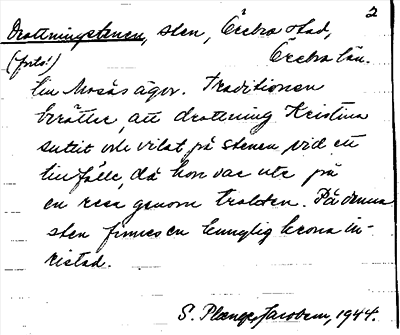 2
Drottningstenen, sten, Örebro stad,
(forts!) Örebro län.
till Mosås ägor. Traditionen
berättar, att drottning Kristina
suttit och vilat på stenen vid ett
tillfälle, då hon var ute på
en resa genom trakten. På denna
sten finnes en kunglig krona in-
ristad.
S. Plange Jacobson, 1944.